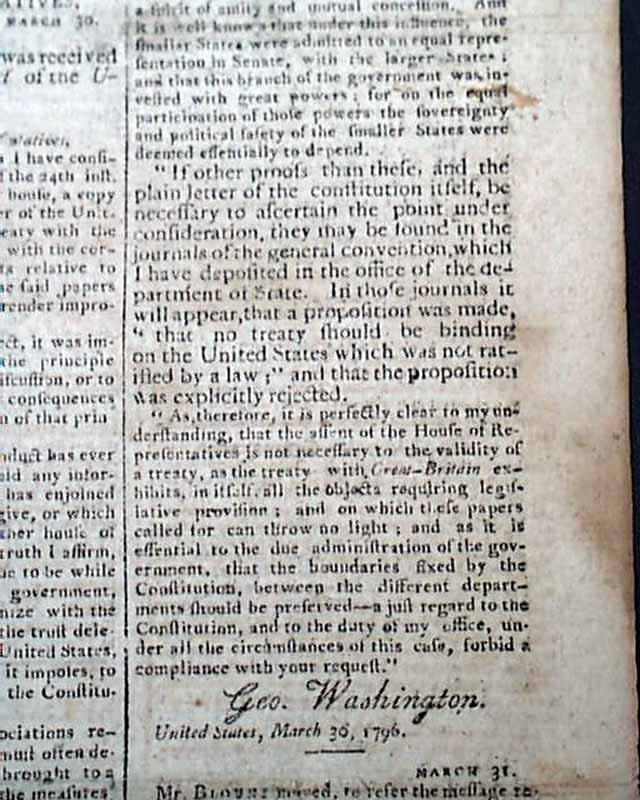 ATIVES,
MARCH 30.
was received
of the U-
I have consi-
the 24th inst.
house, a copy
er of the Unit.
eaty with the
with the cor-
ts relative to
said papers
render impro-
ect, it was im-
the principle
iscussion, or to
consequences
n of that pria
nduct has ever
old any infor-
has enjoined
give, or which
ther house of
truth I affirm,
to be while
government,
nize with the
the trust dele-
United States,
it imposes, to
the Constitu-
ociations re-
must often de-
brought to a
the measures
a spirit of amity and mutual concession. And
it is well known that under this influence, the
smaller States were admitted to an equal repre-
sentation in Senate, with the larger States;
and that this branch of the government was in-
vested with great powers; for on the equal
participation of those powers the sovereignty
and political safety of the smaller States were
deemed essentially to depend.
" If other proofs than these, and the
plain letter of the constitution itself, be
necessary to ascertain the point under
consideration, they may be found in the
journals of the general convention, which
I have deposited in the office of the de-
partment of State. In those journals it
will appear, that a proposition was made,
" that no treaty should be binding
on the United States which was not rat-
ified by a law;" and that the proposition
was explicitly rejected.
" As, therefore, it is perfectly clear to my un-
derstanding, that the assent of the House of Re-
presentatives is not necessary to the validity of
a treaty, as the treaty with Great-Britain ex-
hibits, in itself, all the objects requiring legis-
lative provision; and on which these papers
called for can throw no light; and as it is
essential to the due administration of the gov-
ernment, that the boundaries fixed by the
Constitution, between the different depart-
ments should be preserved—a just regard to the
Constitution, and to the duty of my office, un-
der all the circumstances of this case, forbid a
compliance with your request."
Geo. Washington.
United States, March 30, 1796.
MARCH 31.
Mr. BLOUNT moved, to refer the message re-